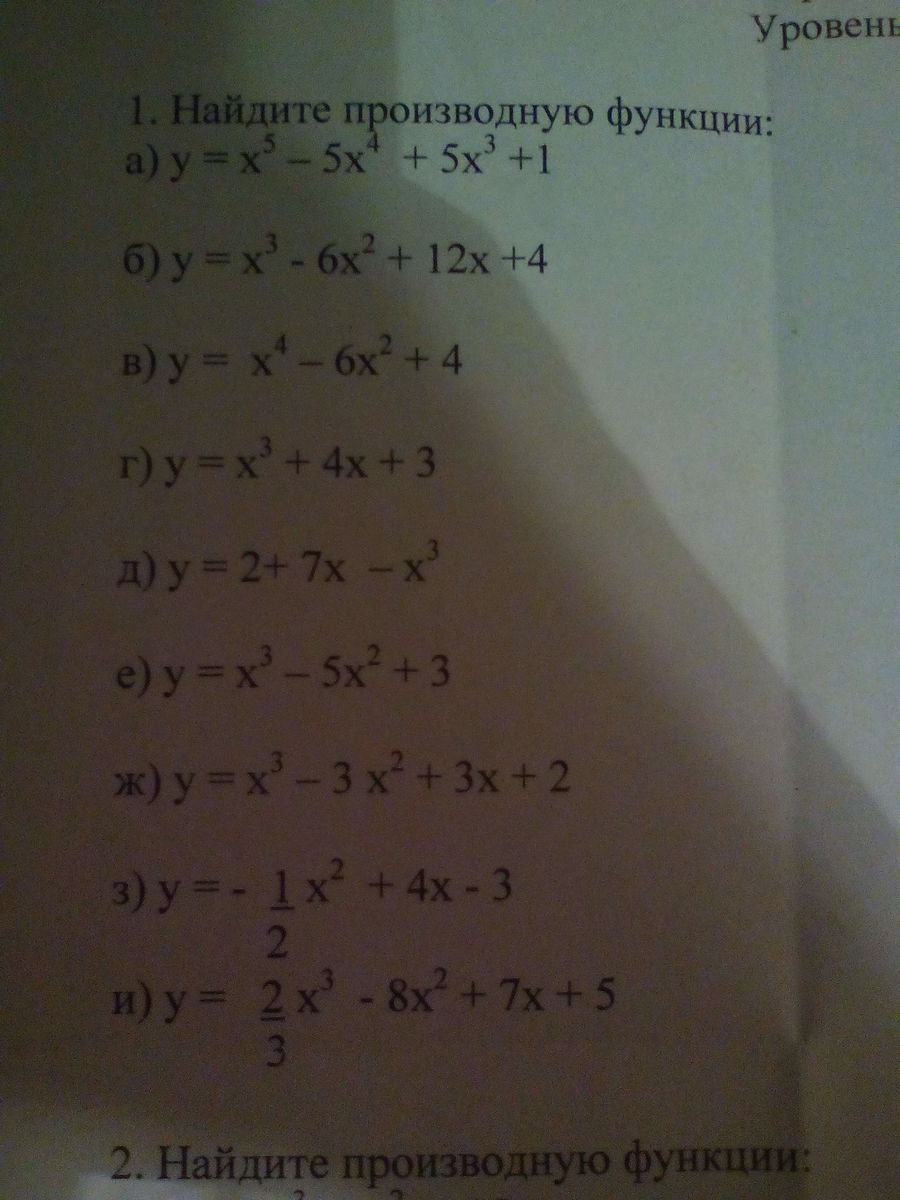 Уровень
1. Найдите производную функции:
а) y = x⁵ – 5x⁴ + 5x³ +1
б) y = x³ - 6x² + 12x +4
в) y = x⁴ – 6x² + 4
г) y = x³ + 4x + 3
д) y = 2+ 7x – x³
е) y = x³ – 5x² + 3
ж) y = x³ – 3 x² + 3x + 2
з) y = - 1 x² + 4x - 3
2
и) y = 2 x³ - 8x² + 7x + 5
3
2. Найдите производную функции: